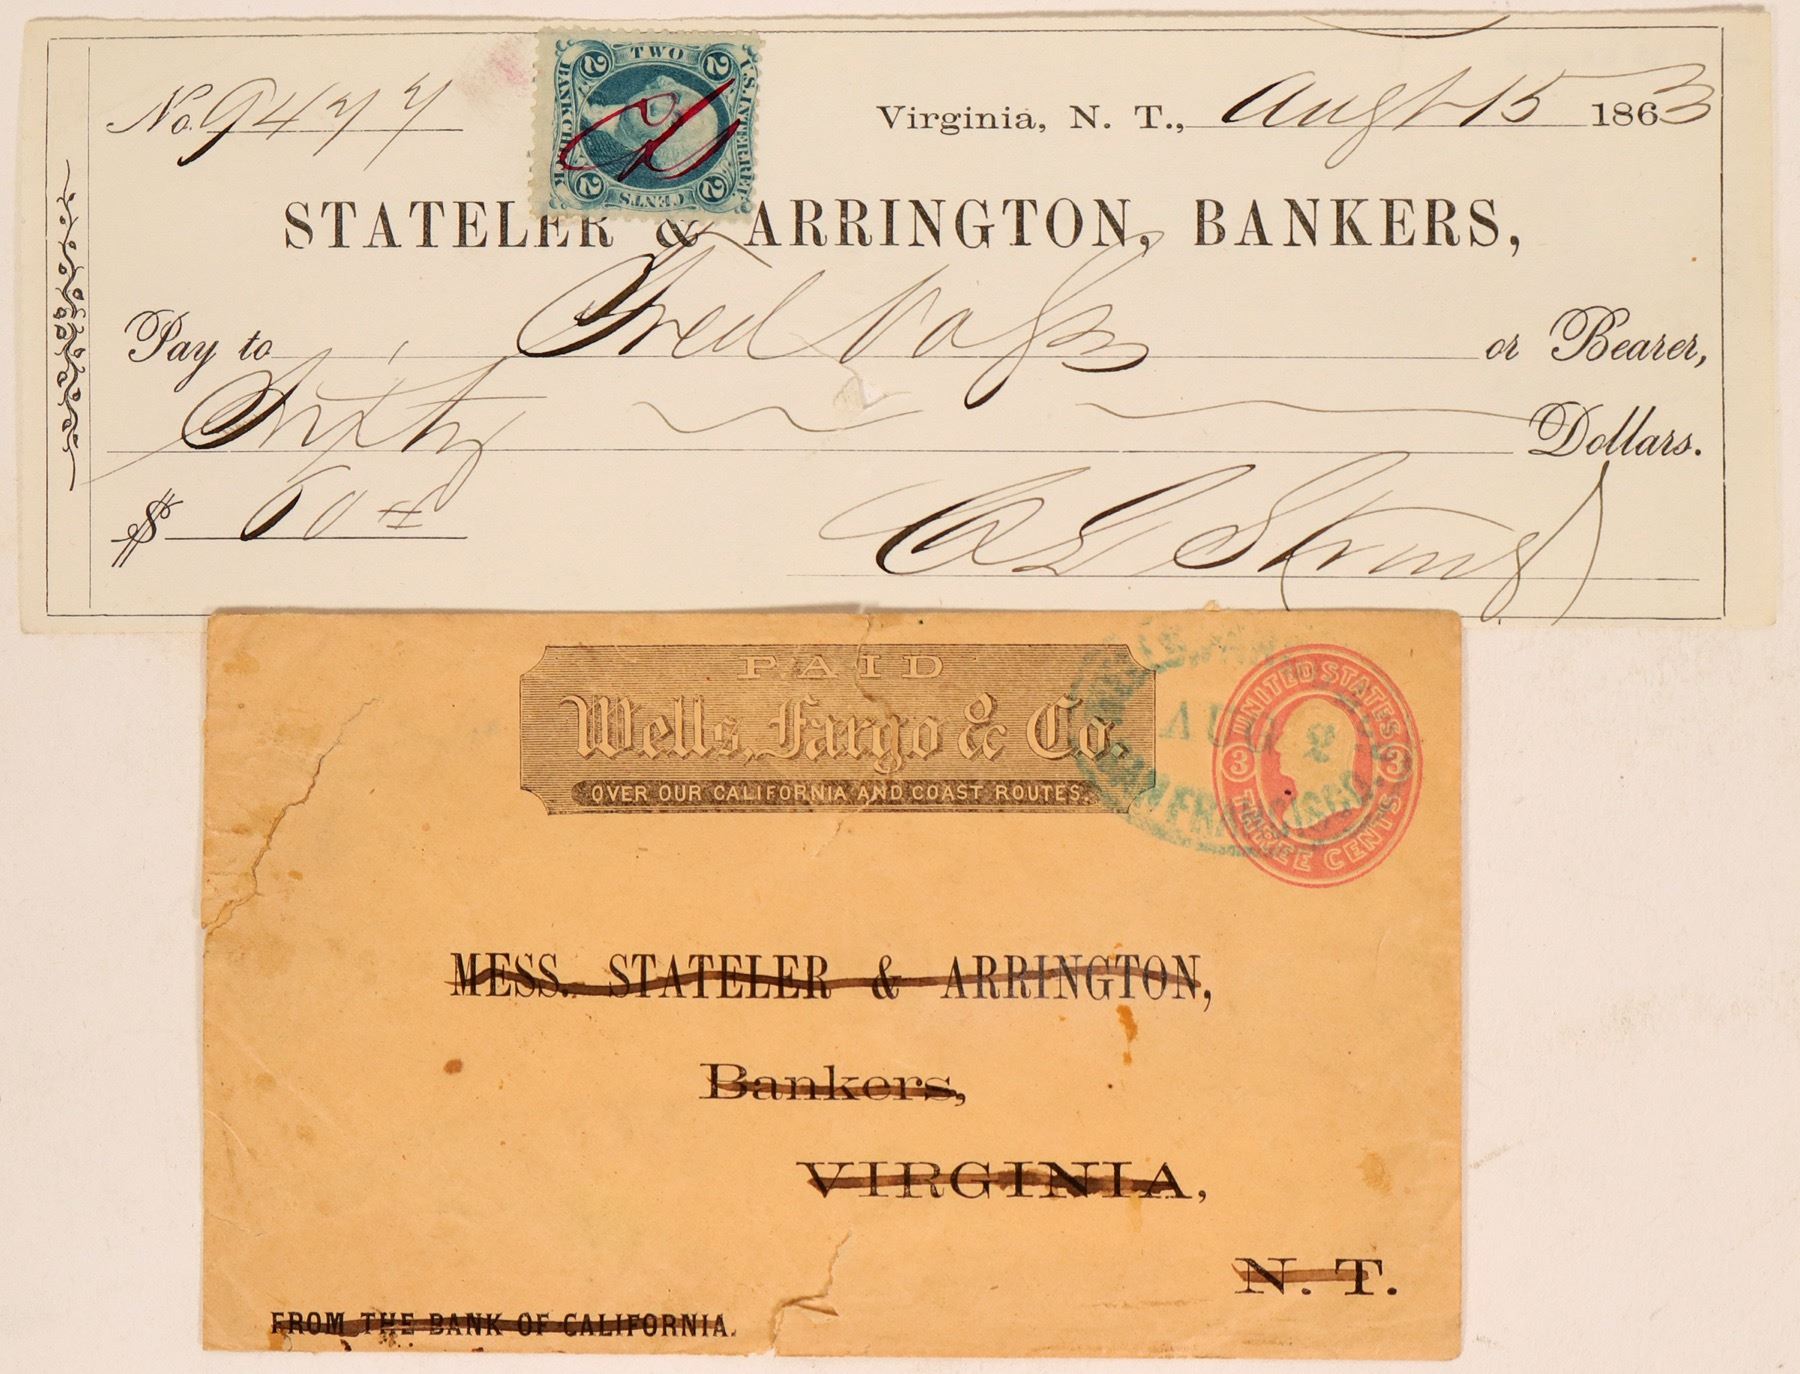 No. 9477
TWO
2 2
U.S. INTER. REV.
BANK CHECK
2 2
CENTS
Virginia, N. T., Aug 15 1863
STATELER & ARRINGTON, BANKERS,
Pay to Fred or Bearer,
Sixty Dollars.
$ 60
C L Strong
PAID
Wells, Fargo & Co.
OVER OUR CALIFORNIA AND COAST ROUTES.
WELLS, FARGO
AUG 2
SAN FRANCISCO.
UNITED STATES
3 3
THREE CENTS
MESS. STATELER & ARRINGTON,
Bankers,
VIRGINIA,
N. T.
FROM THE BANK OF CALIFORNIA.